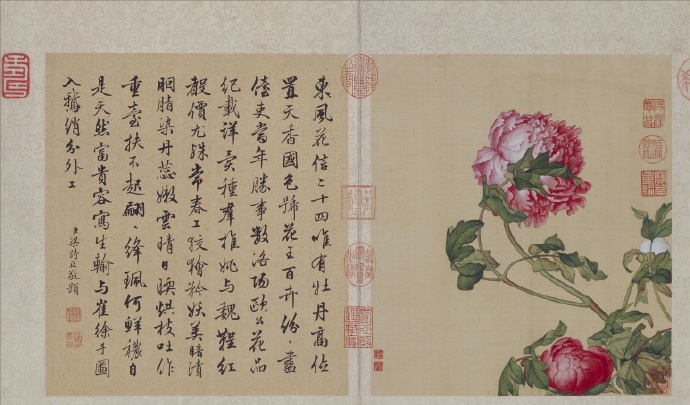 東風花信二十四唯有牡丹高位
置天香國色號花王百卉紛〻盡
儓吏當年勝事數洛陽歐公花品
紀載詳異種羣推姚与魏鞓紅
價尤殊常春工狡獪矜妖美暗漬
胭脂染丹蕊嫩雲晴日暖烘枝吐作
重臺扶不起翩〻絳珮何鮮穠自
是天然富貴容寫生輸与崔徐手圖
入鵝綃分外工
臣梁詩正敬題